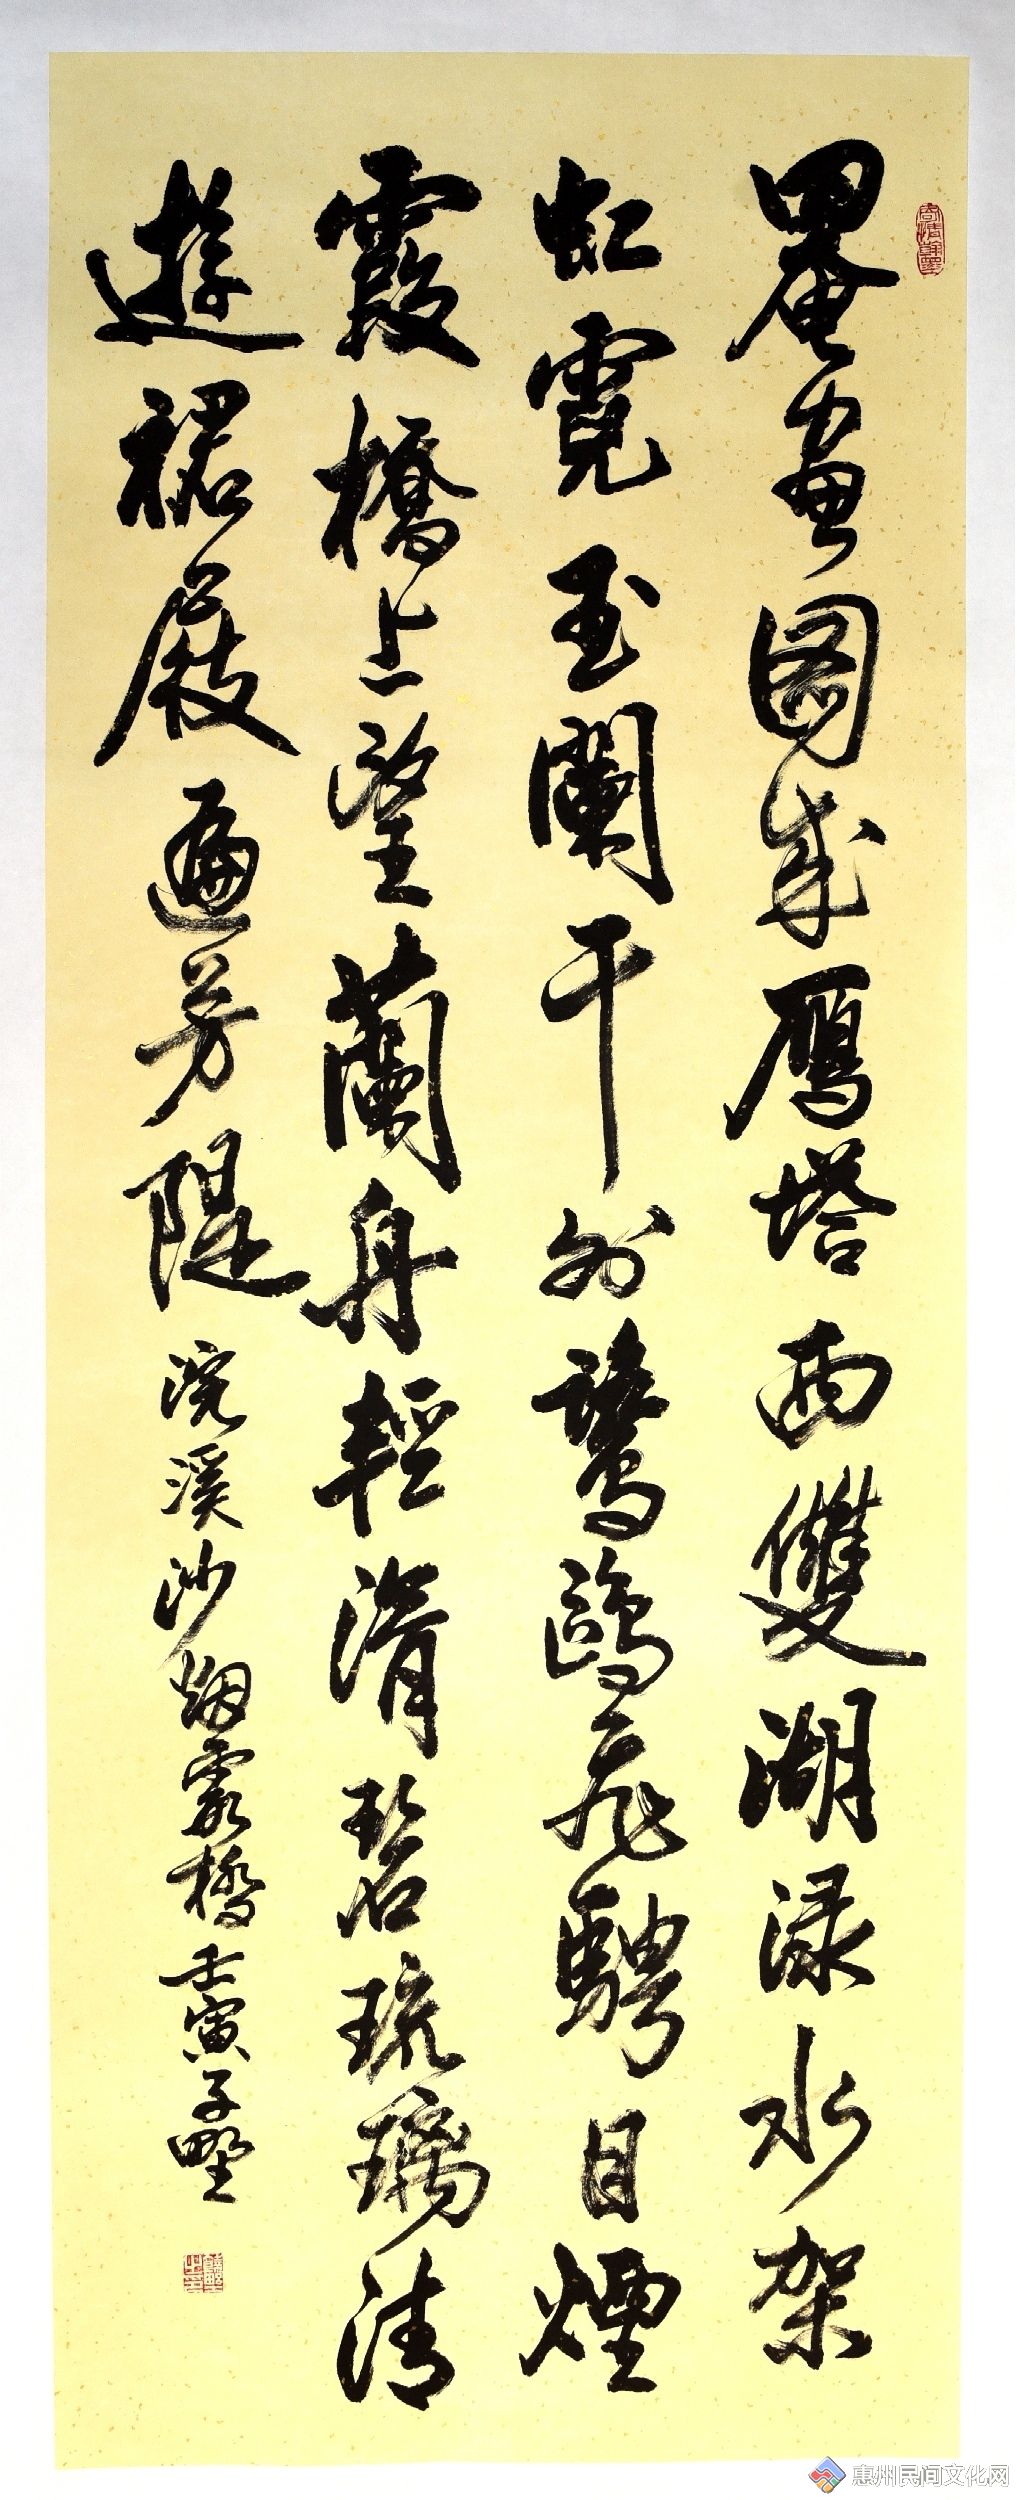 罨畫圖成雁塔西雙湖渌水架
虹霓玉闌干外鷺鷗飛騁目煙
霞橋上望蘭舟輕漪碧琉璃清
遊裙屐遍芳隄
浣溪沙烟霞橋壬寅子野
惠州民间文化网